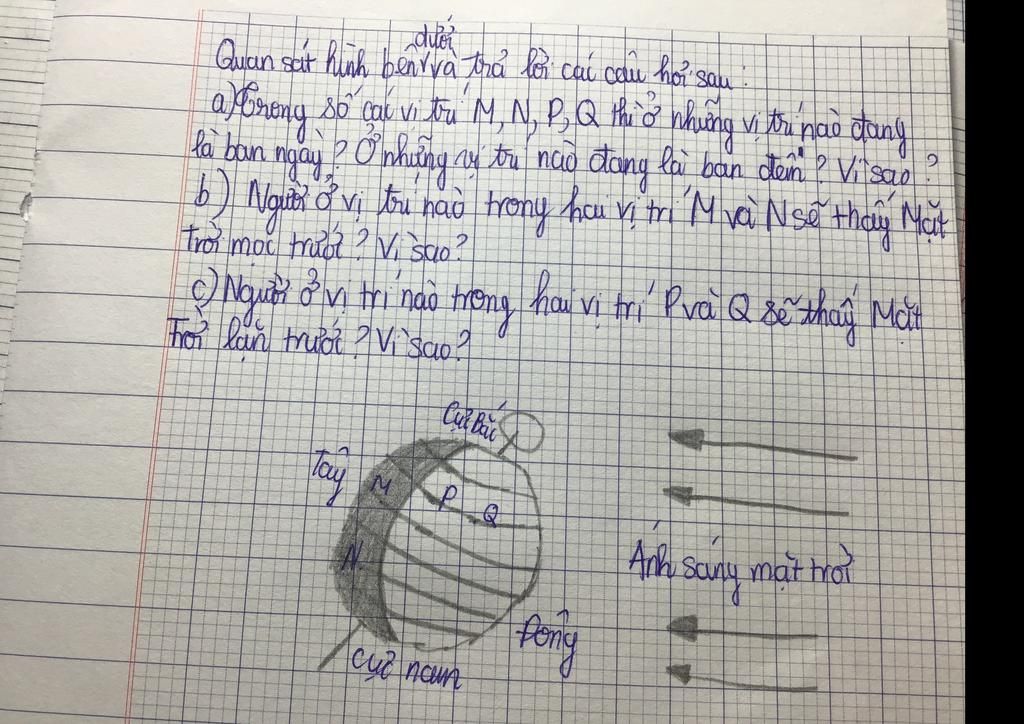 dưới
Quan sát hình bên và trả lời các câu hỏi sau:
a) Trong số các vị trí M, N, P, Q thì ở những vị trí nào đang
là ban ngày? Ở những vị trí nào đang là ban đêm? Vì sao?
b) Người ở vị trí nào trong hai vị trí M và N sẽ thấy Mặt
trời mọc trước? Vì sao?
c) Người ở vị trí nào trong hai vị trí P và Q sẽ thấy Mặt
Trời lặn trước? Vì sao?
Cực Bắc
Tây
M
P
Q
N
Ánh sáng mặt trời
Đông
cực nam